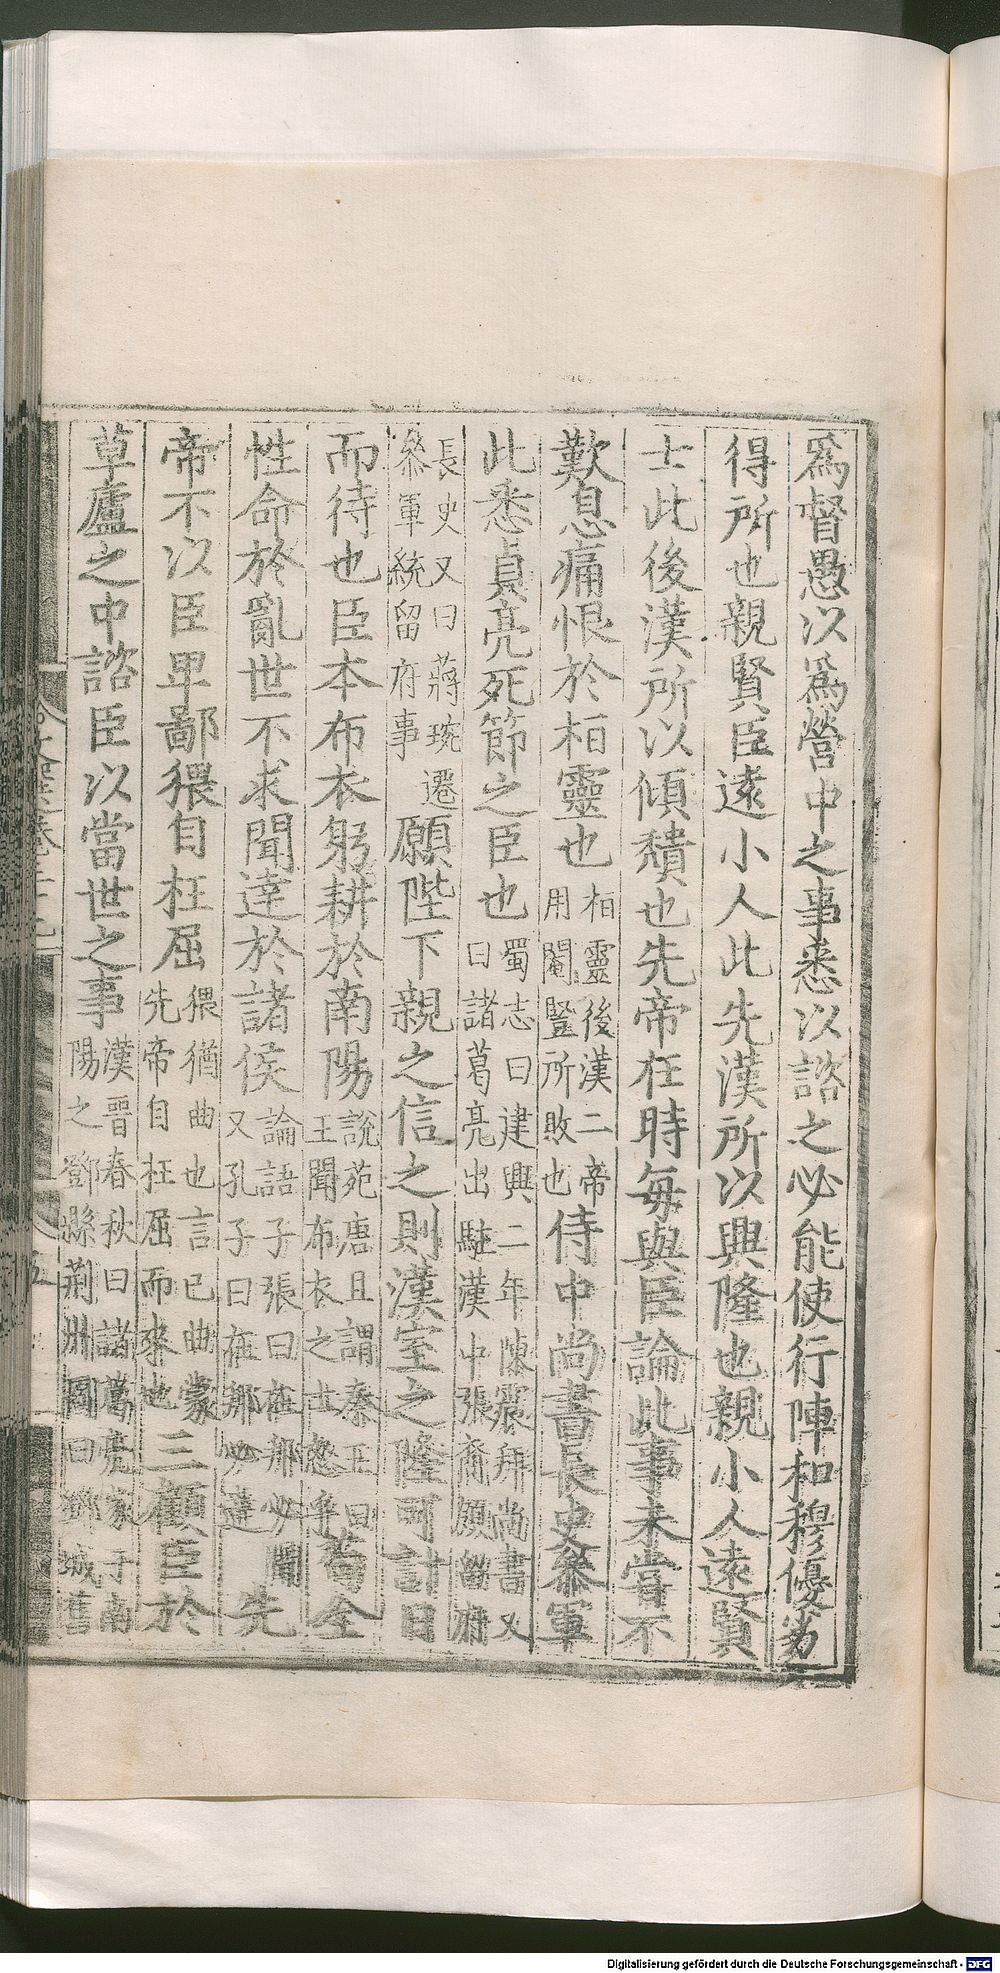 爲督愚以爲營中之事悉以諮之必能使行陣和穆優劣
得所也親賢臣遠小人此先漢所以興隆也親小人遠賢
士此後漢所以傾穨也先帝在時每與臣論此事未嘗不
歎息痛恨於桓靈也桓靈後漢二帝用閹豎所敗也侍中尚書長史叅軍
此悉貞亮死節之臣也蜀志曰建興二年陳震拜尚書又曰諸葛亮出駐漢中張裔領留府
長史又曰蔣琬遷叅軍統留府事願陛下親之信之則漢室之隆可計日
而待也臣本布衣躬耕於南陽說苑唐且謂秦王曰王聞布衣之士怒乎苟全
性命於亂世不求聞達於諸侯論語子張曰在邦必聞又孔子曰在邦必達先
帝不以臣卑鄙猥自枉屈猥猶曲也言已曲蒙先帝自枉屈而來也三顧臣於
草廬之中諮臣以當世之事漢晉春秋曰諸葛亮家于南陽之鄧縣荊州圖曰鄧城舊
Digitalisierung gefördert durch die Deutsche Forschungsgemeinschaft - DFG